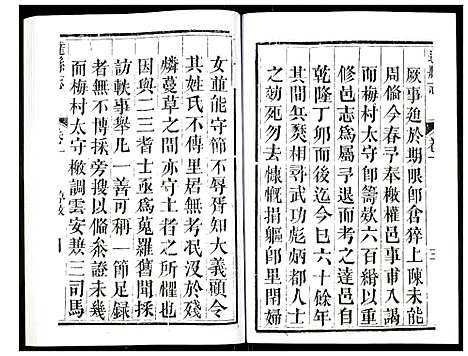 厥事迫於期限即倉猝上陳未能
周偹今春予奉檄權邑事甫入謁
而梅村太守即籌欵六百緡以重
修邑志爲屬予退而考之達邑自
乾隆丁卯而後已六十餘年
間其兵燹相尋武功彪炳都人士
之効死勿去慷慨捐軀即里閈婦
女並能守節不辱胥知大義顧令
其姓氏不傳里居無考泯没於殘
燐蔓草之間亦守土者之所懼也
因與二三者士亟爲蒐羅舊聞採
訪軼事舉凡一善可稱一節足録
者無不博採旁搜以偹叅證未幾
而梅村太守檄調雲安兼三司馬
達縣志
卷一
三
達縣志
卷一
序敘
四